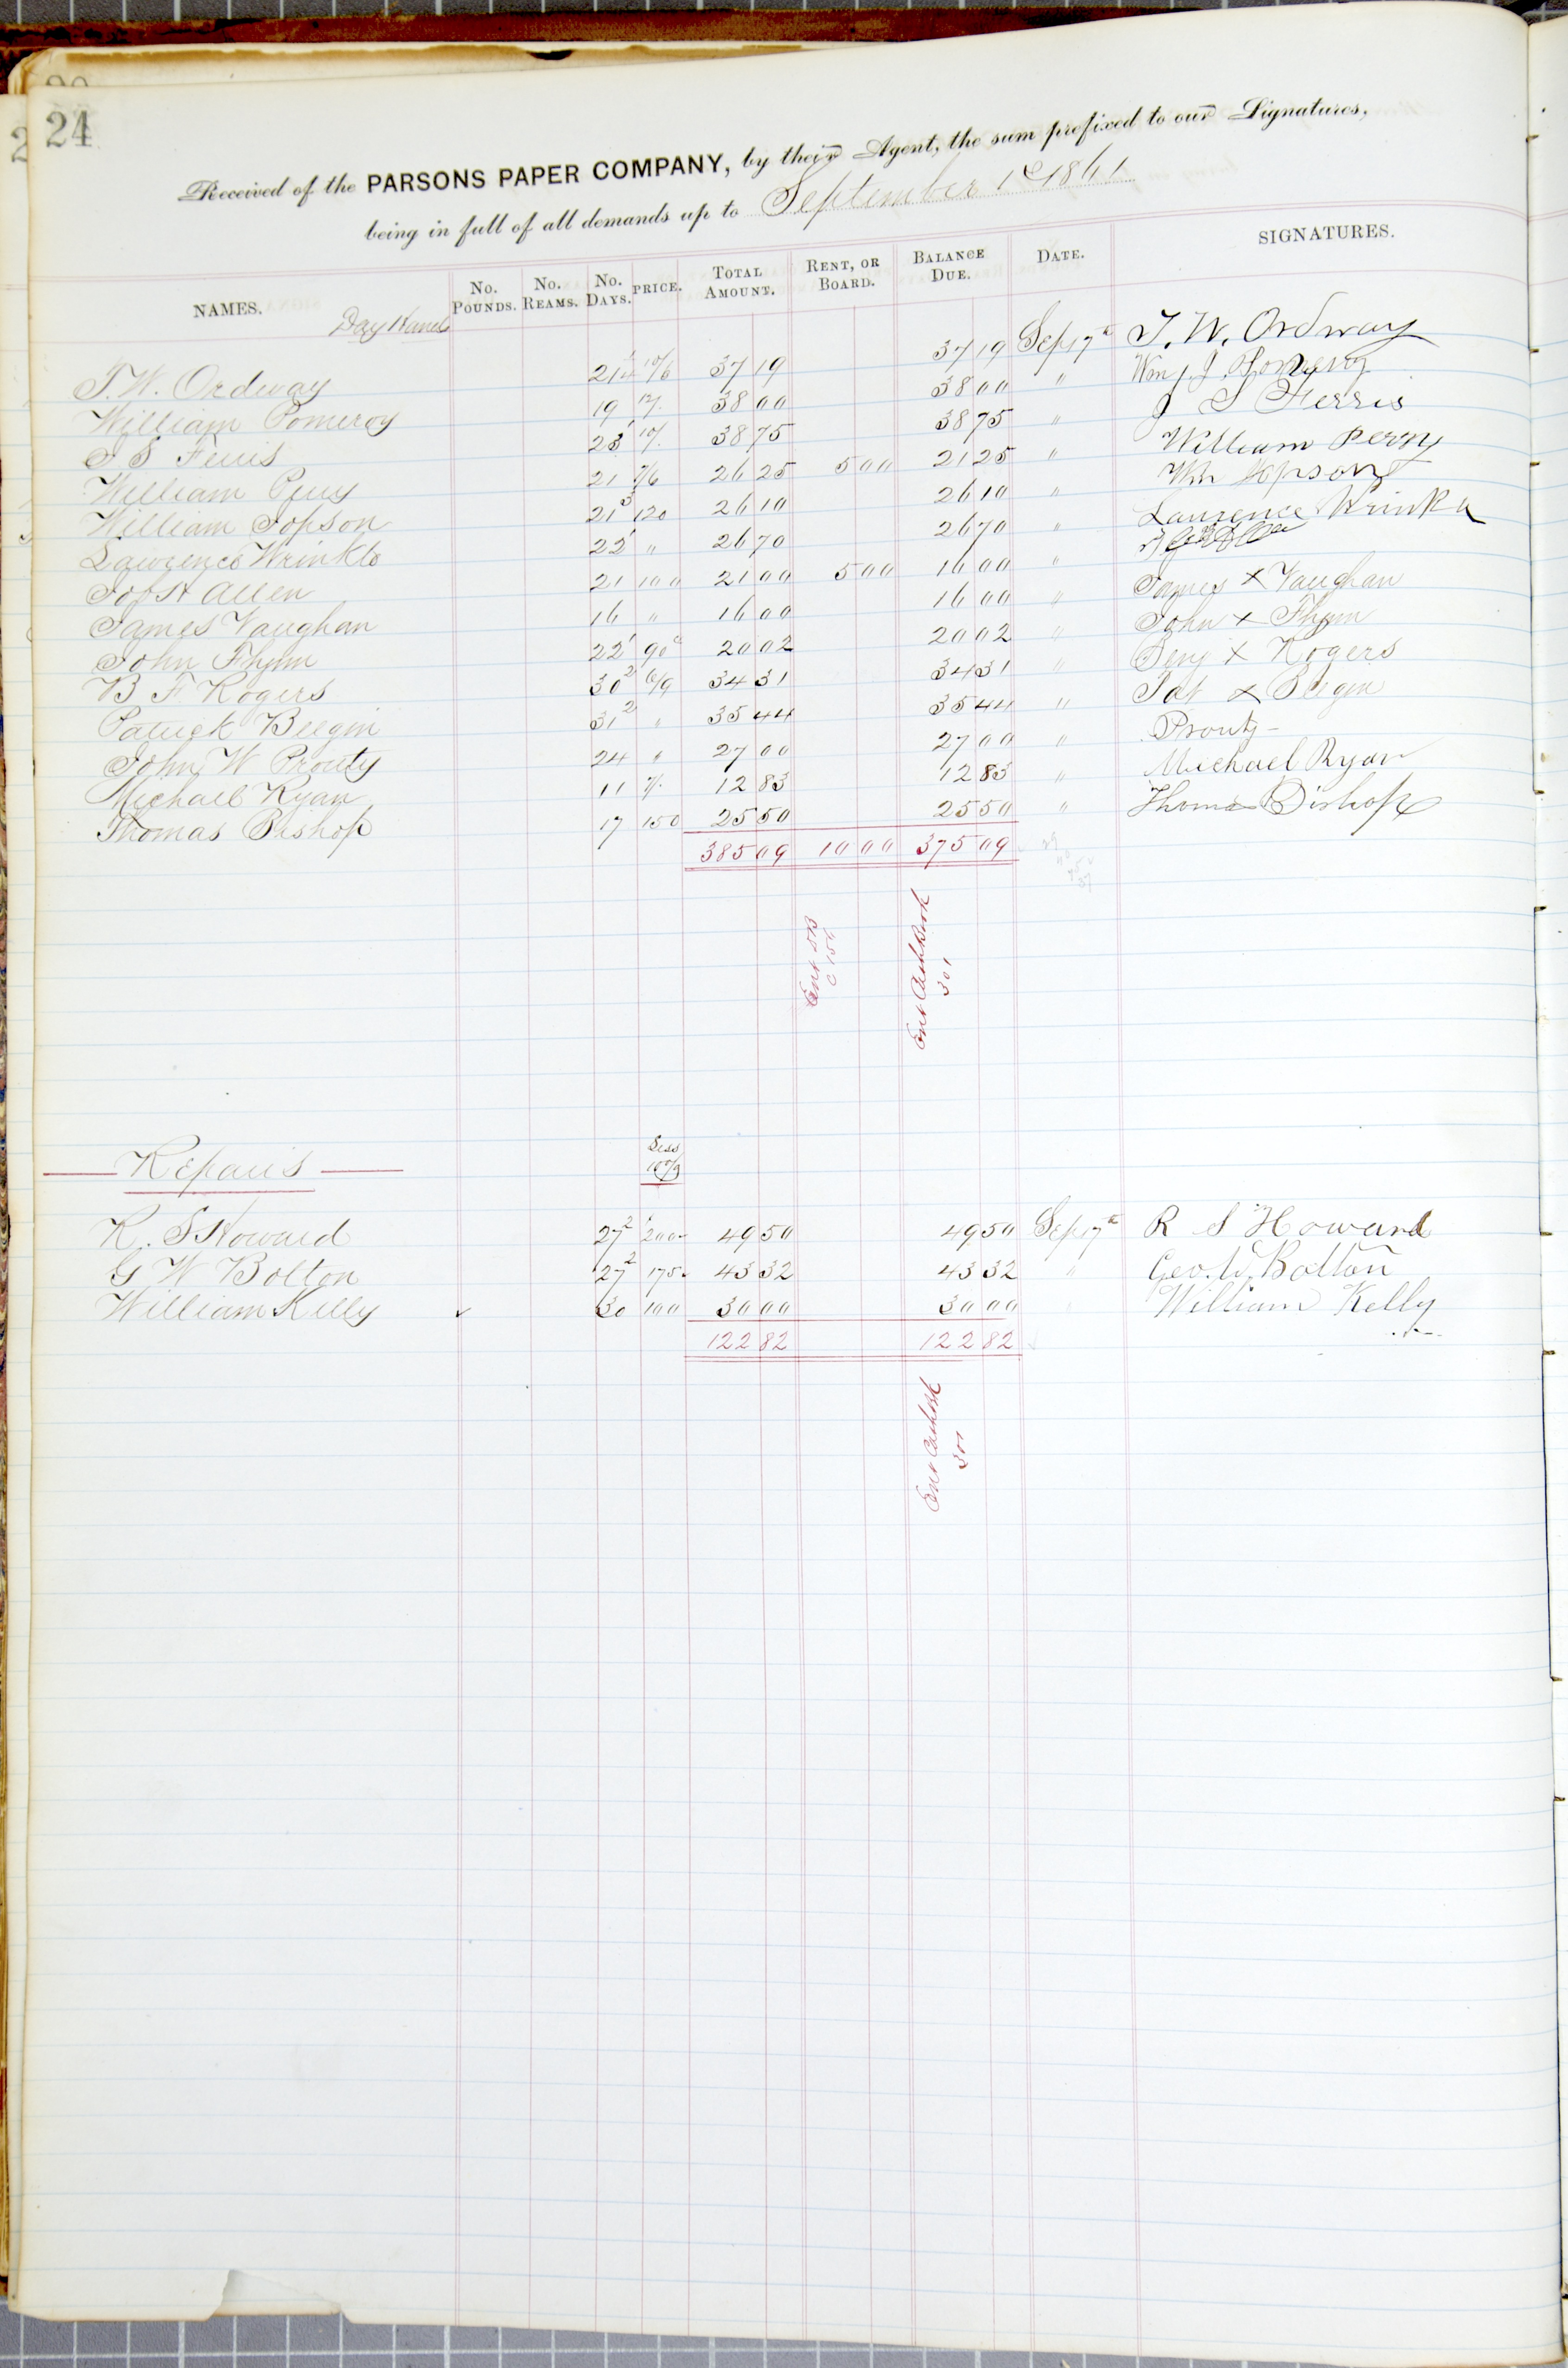 24
Received of the PARSONS PAPER COMPANY, by their Agent, the sum prefixed to our Signatures,
being in full of all demands up to September 1st 1861
NAMES. No. POUNDS. No. REAMS. No. DAYS. PRICE. TOTAL AMOUNT. RENT, OR BOARD. BALANCE DUE. DATE. SIGNATURES.
Day Hands
T. W. Ordway 21¼ 10/6 37 19 37 19 Sep 17th T. W. Ordway
William Pomeroy 19 12/. 38 00 38 00 " Wm J. Pomeroy
J S Ferris 23¹ 10/. 38 75 38 75 " J S Ferris
William Perry 21 7/6 26 25 5 00 21 25 " William Perry
William Jopson 21³ 120 26 10 26 10 " Wm Jopson
Lawrence Wrinkle 22¹ " 26 70 26 70 " Laurence Wrinkle
Jos H Allen 21 100 21 00 5 00 16 00 "
James Vaughan 16 " 16 00 16 00 " James X Vaughan
John Flynn 22¹ 90c 20 02 20 02 " John X Flynn
B F Rogers 30² 6/9 34 31 34 31 " Benj X Rogers
Patrick Beegin 31² " 35 44 35 44 " Pat X Beegin
John W Prouty 24 " 27 00 27 00 " Prouty
Michael Ryan 11 7/. 12 83 12 83 " Michael Ryan
Thomas Bishop 17 150 25 50 25 50 " Thomas Bishop
385 09 10 00 375 09
Ent DB
C 156
Ent Cash Book
301
Repairs
Less
10%
R. S Howard 27² 200 49 50 49 50 Sep 17th R S Howard
G W Bolton 27² 175 43 32 43 32 " Geo. W. Bolton
William Kelly 30 100 30 00 30 00 " William Kelly
122 82 122 82
Ent Cash Bk
301